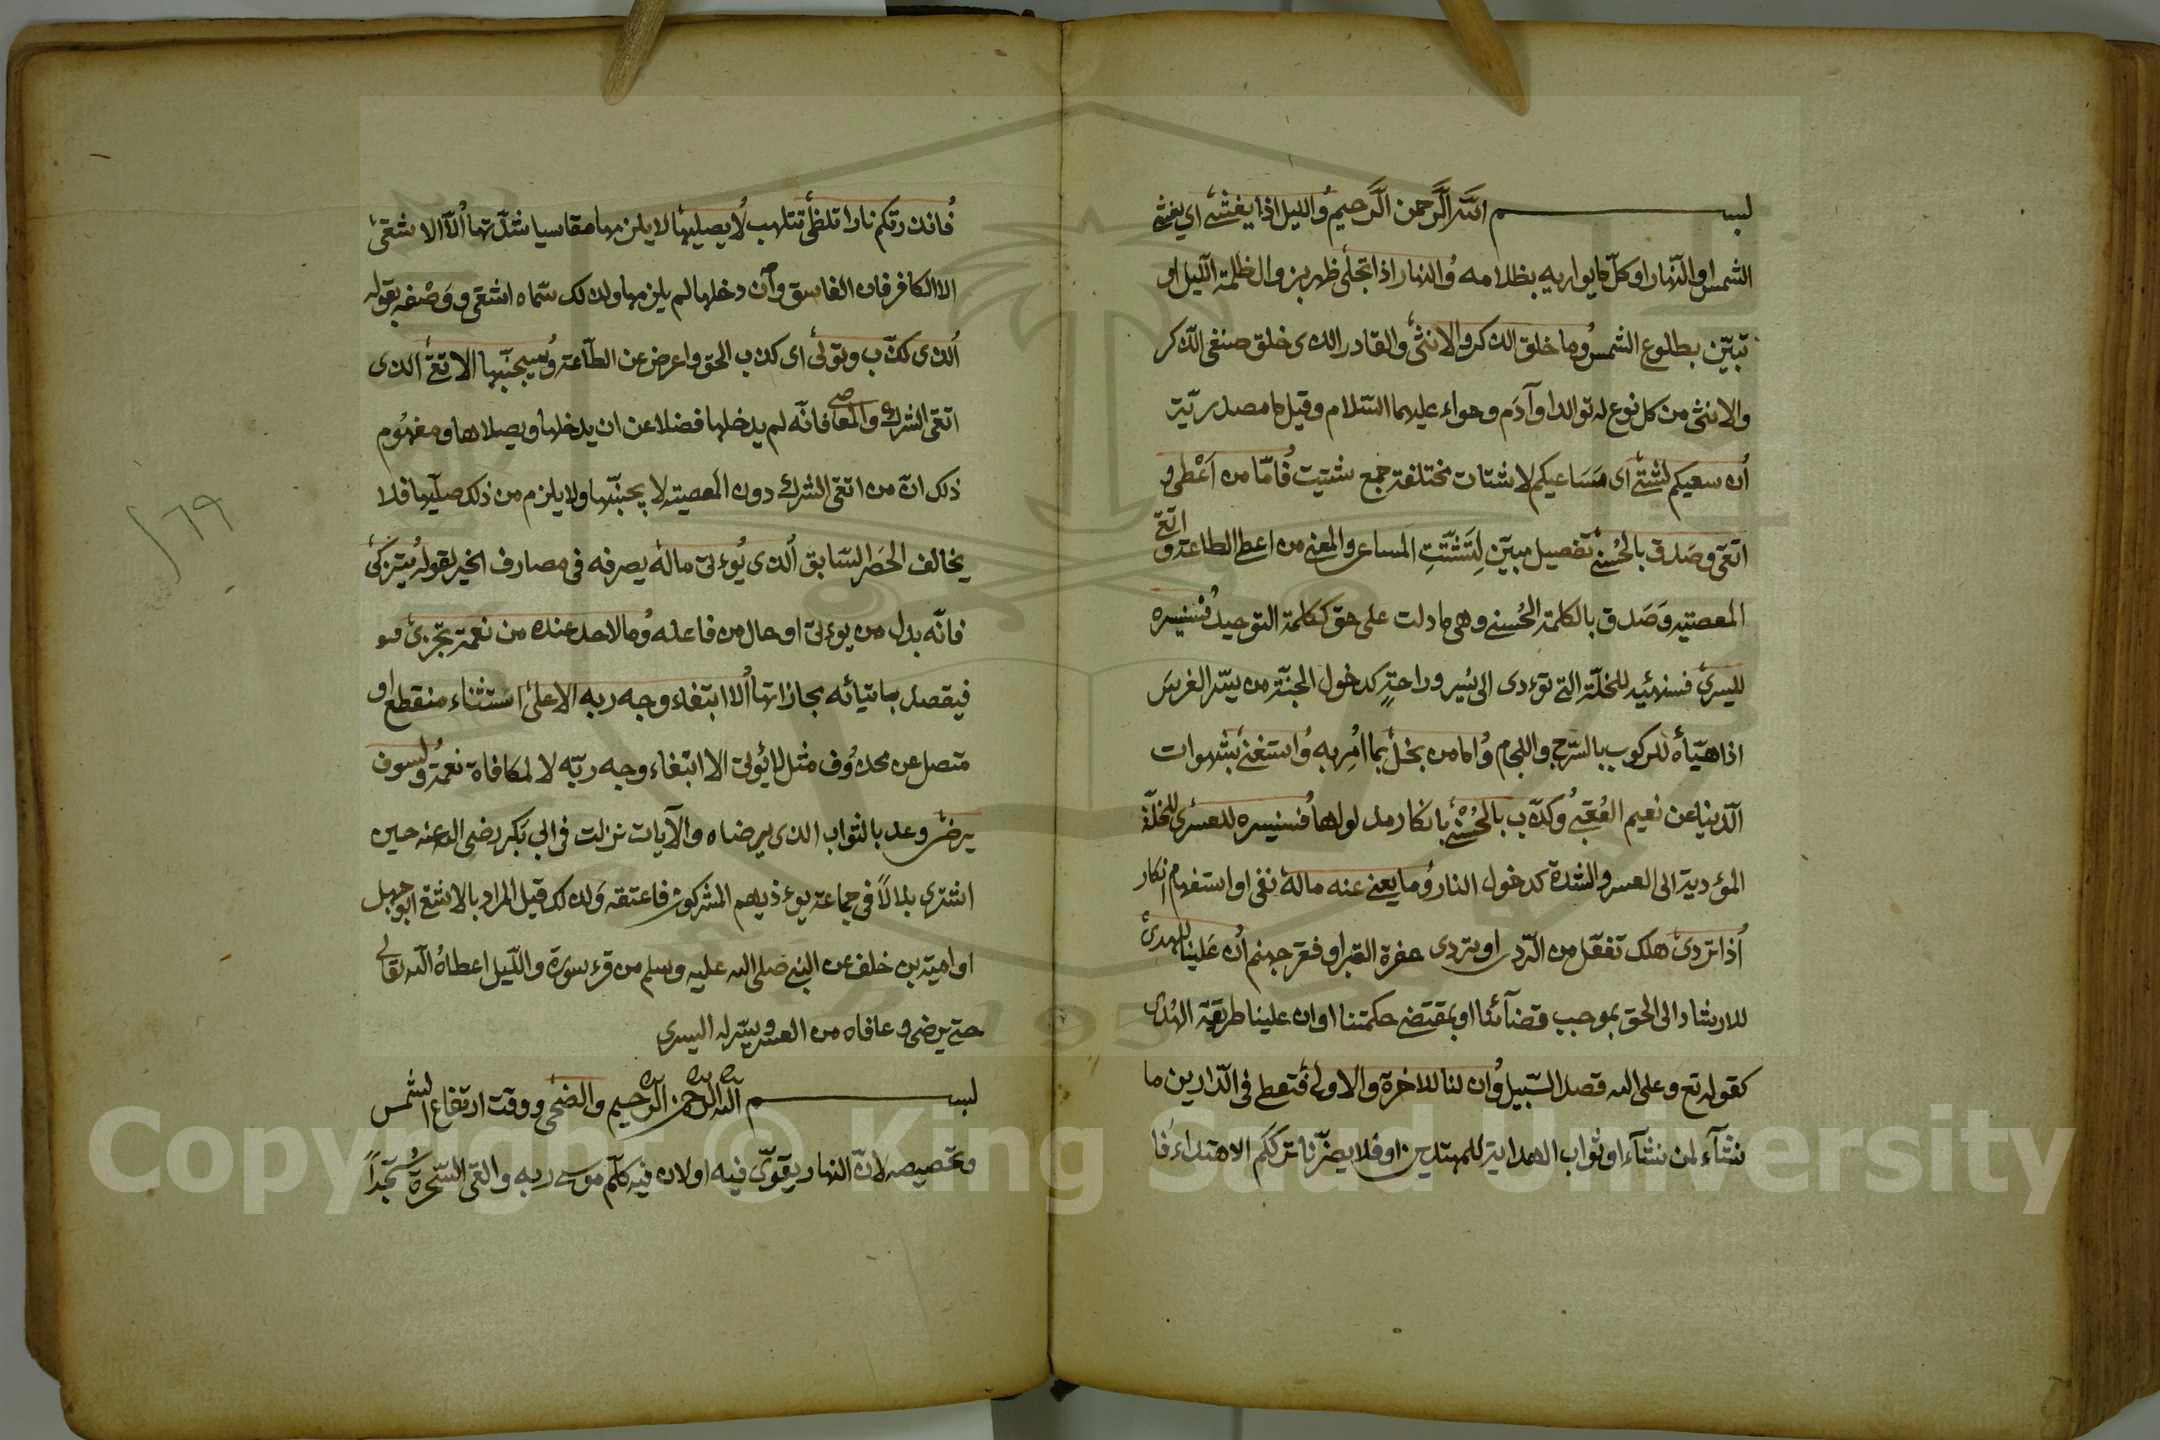 بسم الله الرحمن الرحيم والليل اذا يغشى اي يغشى
الشمس او النهار او كل ما يواريه بظلامه والنهار اذا تجلى ظهر بزوال ظلمة الليل او
تبيّن بطلوع الشمس وما خلق الذكر والانثى والقادر الذى خلق صنفى الذكر
والانثى من كل نوع له توالد او آدم وحواء عليهما السلام وقيل ما مصدرية
ان سعيكم لشتى اى مساعيكم لاشتات مختلفة جمع شتيت فامّا من اعْطى و
اتقى وصَدق بالحُسنى تفصيل مبيّن لِتَشَتّتِ المساعى والمعنى من اعطى الطاعة و اتقى
المعصية وصَدق بالكلمة الحُسنى وهى ما دلت على حق ككلمة التوحيد فسنيسره
لليسرى فسنهيّئه للخلّة التى تؤدى الى يُسر وراحةٍ كدخول الجنة من يسّر الفرسَ
اذا هيّأه للركوب بالسّرج واللجام واما من بخل بما اُمِر به واستغنى بشهوات
الدنيا عن نعيم العُقبى وكذّب بالحُسْنى بانكار مدلولها فسنيسره للعسرى للخلّة
المؤدية الى العسر والشدة كدخول النار وما يغنى عنه ماله نفى او استفهام انكار
اذا تردى هلك تفعّل من الرّدى او تردى حفرة القبر او قعر جهنم ان علينا للهدى
للارشاد الى الحق بموجب قضآئنا او بمقتضى حكمتنا او ان علينا طريقة الهُدى
كقوله تع وعلى الله قصد السّبيل وان لنا للاخرة والاولى فنعطى فى الدّارين ما
نشآء لمن نشآء او ثواب الهداية للمهتدين او فلا يضرّنا ترككم الاهتداء فا
فانذرتكم نارا تلظى تتلهب لا يصليها لا يلزمها مقاسيا شدّتها اِلآ الاشقى
الا الكافر فان الفاسق وان دخلها لم يلزمها ولذلك سمّاه اشقى ووَصْفه بقوله
الذى كذّب وتولى اى كذب الحق واعرض عن الطّاعة وسيجنّبها الاتقى الذى
اتقى الشرك والمعاصى فانّه لم يدخلها فضلا عن ان يدخلها ويصلاها ومفهوم
ذلك انّ من اتقى الشرك دون المعصية لا يجنّبها ولا يلزم من ذلك صليها فلا
يخالف الحَصر السّابق الذى يُؤتى ماله يصرفه فى مصارف الخير لقوله يتزكى
فانّه بدل من يؤتى او حال من فاعله وما لاحد عنده من نعمة تجزى
فيقصد باتيائه مجازاتها الا ابتغاء وجه ربه الاعلى استثناء منقطع او
متصل عن محذوف مثل لا يُؤتى الا ابتغاء وجه ربّه لا لمكافاة نعمة ولسوف
يرضى وعد بالثواب الذى يرضاه والآيات نزلت فى ابى بَكر رضى الله عنه حين
اشترى بلالاً فى جماعة يؤذيهم المشركون فاعتقه ولذلك قيل المراد بالاشقى ابو جهل
او امية بن خلف عن النبى صلى الله عليه وسلم من قرء سورة والليل اعطاهُ الله تعالى
حتى يرضى وعافاه من العسر ويسّر له اليسرى
بسم الله الرحمن الرحيم والضحى ووقت ارتفاع الشمس
وتخصيصه لانّ النهار يقوّى فيه او لان فيه كلّم موسى ربه والقى السّحرة سُجّداً
٦٩
Copyright © King Saud University